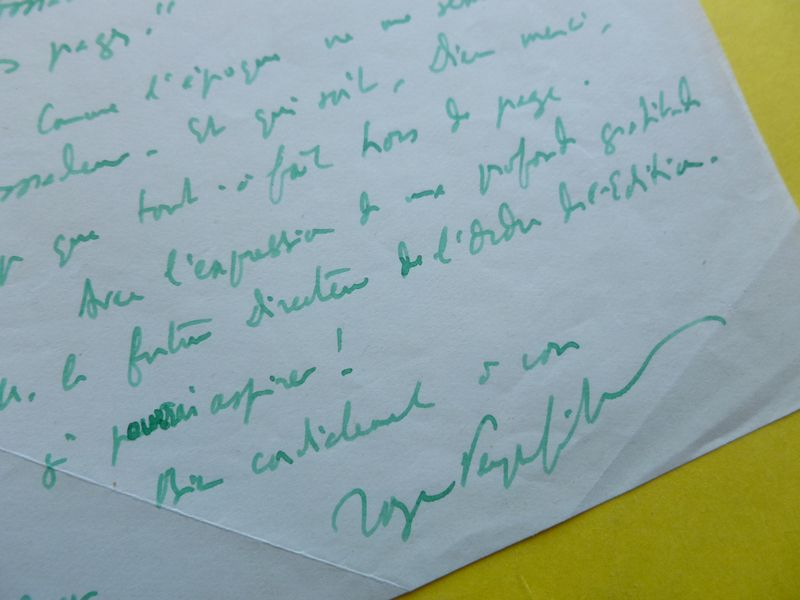 pages."
Comme l'époque ne me
Et qui soit, Dieu merci,
que tout à fait hors de page.
Avec l'expression de ma profonde gratitude
le futur Directeur de l'Ordre de l'Edition.
j' pourrai aspirer!
Bien cordialement à vous
Roger Peyrefitte